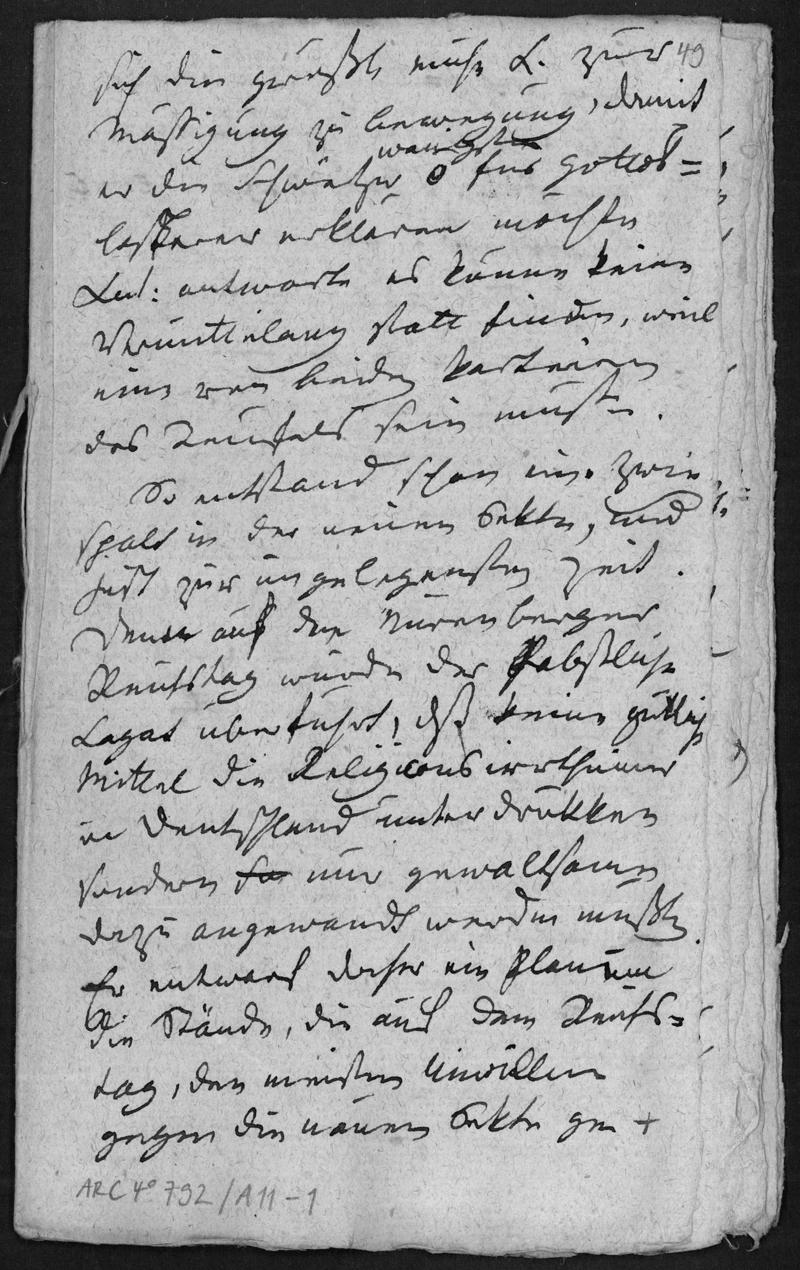 49
sich die größte mühe L. zur
Mässigung zu bewegung, damit
wenigstens
er die Schweitzer o fur gottes=
lesterer erkleren möchte
Lut: antworte es könne keine
Vermittelung statt finden, weil
eine von beiden Parteien
des Teufels sein muste.
So entstand schon ein. Zwie
spalt in der neuen Sekte, und
just zur ungelegensten Zeit.
Denn auf den Nürenberger
Reichstag wurde der Pabstliche
Legat überfuhrt, dß keine gütlich
Mittel die Religions irrthümer
in Deutschland unterdrükken
sondern nur gewaltsame
dazu angewandt werden müßte
Er entwarf daher ein Plan um
die Stände, die auf dem Reichs=
tag, den meisten Unwillen
gegen die neuen Sekte ge +
ARC 4° 792 / A11-1